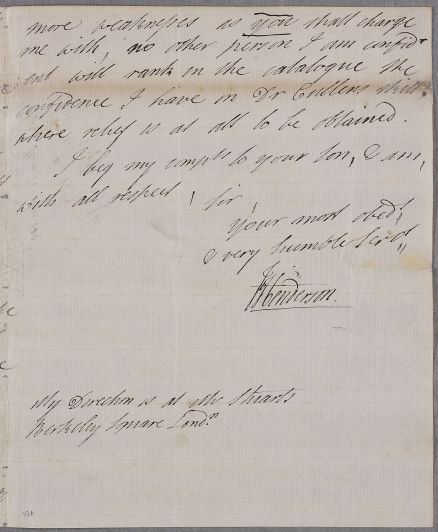 more weaknesses as you shall charge
me with, no other person I am confid-
ent will rank in the catalogue the
confidence I have in Dr Cullens skill
where relief is at all to be obtained.
I beg my compts to your son, & am,
with all respect, Sir,
Your most obedt
& very humble Servt
Henderson.
My Direction is at Stuarts
Berkeley Square Londn